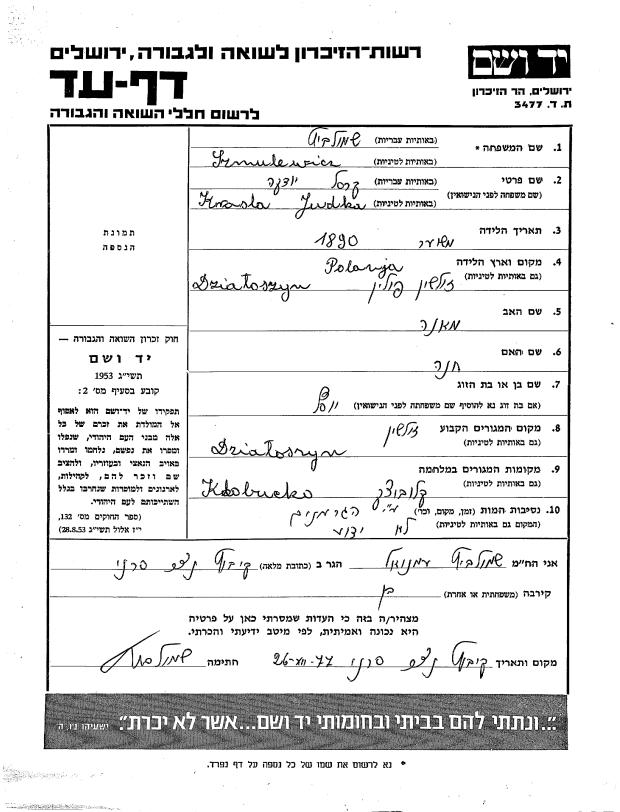 רשות־הזיכרון לשואה ולגבורה, ירושלים
דף-עד
לרשום חללי השואה והגבורה
יד ושם
ירושלים, הר הזיכרון
ת. ד. 3477
תמונת
הנספה
חוק זכרון השואה והגבורה —
יד ושם
תשי״ג 1953
קובע בסעיף מס׳ 2:
תפקידו של יד־ושם הוא לאסוף
אל המולדת את זכרם של כל
אלה מבני העם היהודי, שנפלו
ומסרו את נפשם, נלחמו ומרדו
באויב הנאצי ובעוזריו, ולהציב
שם וזכר להם, לקהילות,
לארגונים ולמוסדות שנחרבו בגלל
השתייכותם לעם היהודי.
(ספר החוקים מס׳ 132,
י״ז אלול תשי״ג 28.8.53)
1. שם המשפחה * (באותיות עבריות) שמולביץ
(באותיות לטיניות) Szmulewicz
2. שם פרטי (באותיות עבריות) יודקה
(שם משפחה לפני הנישואין) (באותיות לטיניות) Judka
3. תאריך הלידה משוער 1890
4. מקום וארץ הלידה Polanija
(גם באותיות לטיניות) זלשין פולין Działoszyn
5. שם האב
6. שם האם חנה
7. שם בן או בת הזוג
(אם בת זוג נא להוסיף שם משפחתה לפני הנישואין)
8. מקום המגורים הקבוע זלשין
(גם באותיות לטיניות) Działoszyn
9. מקומות המגורים במלחמה
(גם באותיות לטיניות) קלובוצק
10. נסיבות המות (זמן, מקום, וכו׳) ע״י הגרמנים
(המקום גם באותיות לטיניות) לא ידוע
אני הח״מ שמולביץ עמנואל הגר ב (כתובת מלאה) קיבוץ נצר סרני
קירבה (משפחתית או אחרת) בן
מצהיר/ה בזה כי העדות שמסרתי כאן על פרטיה
היא נכונה ואמיתית, לפי מיטב ידיעתי והכרתי.
מקום ותאריך קיבוץ נצר סרני 26-VII-77 חתימה שמולביץ
״..ונתתי להם בביתי ובחומותי יד ושם...אשר לא יכרת״. ישעיהו נ״ו, ה
* נא לרשום את שמו של כל נספה על דף נפרד.